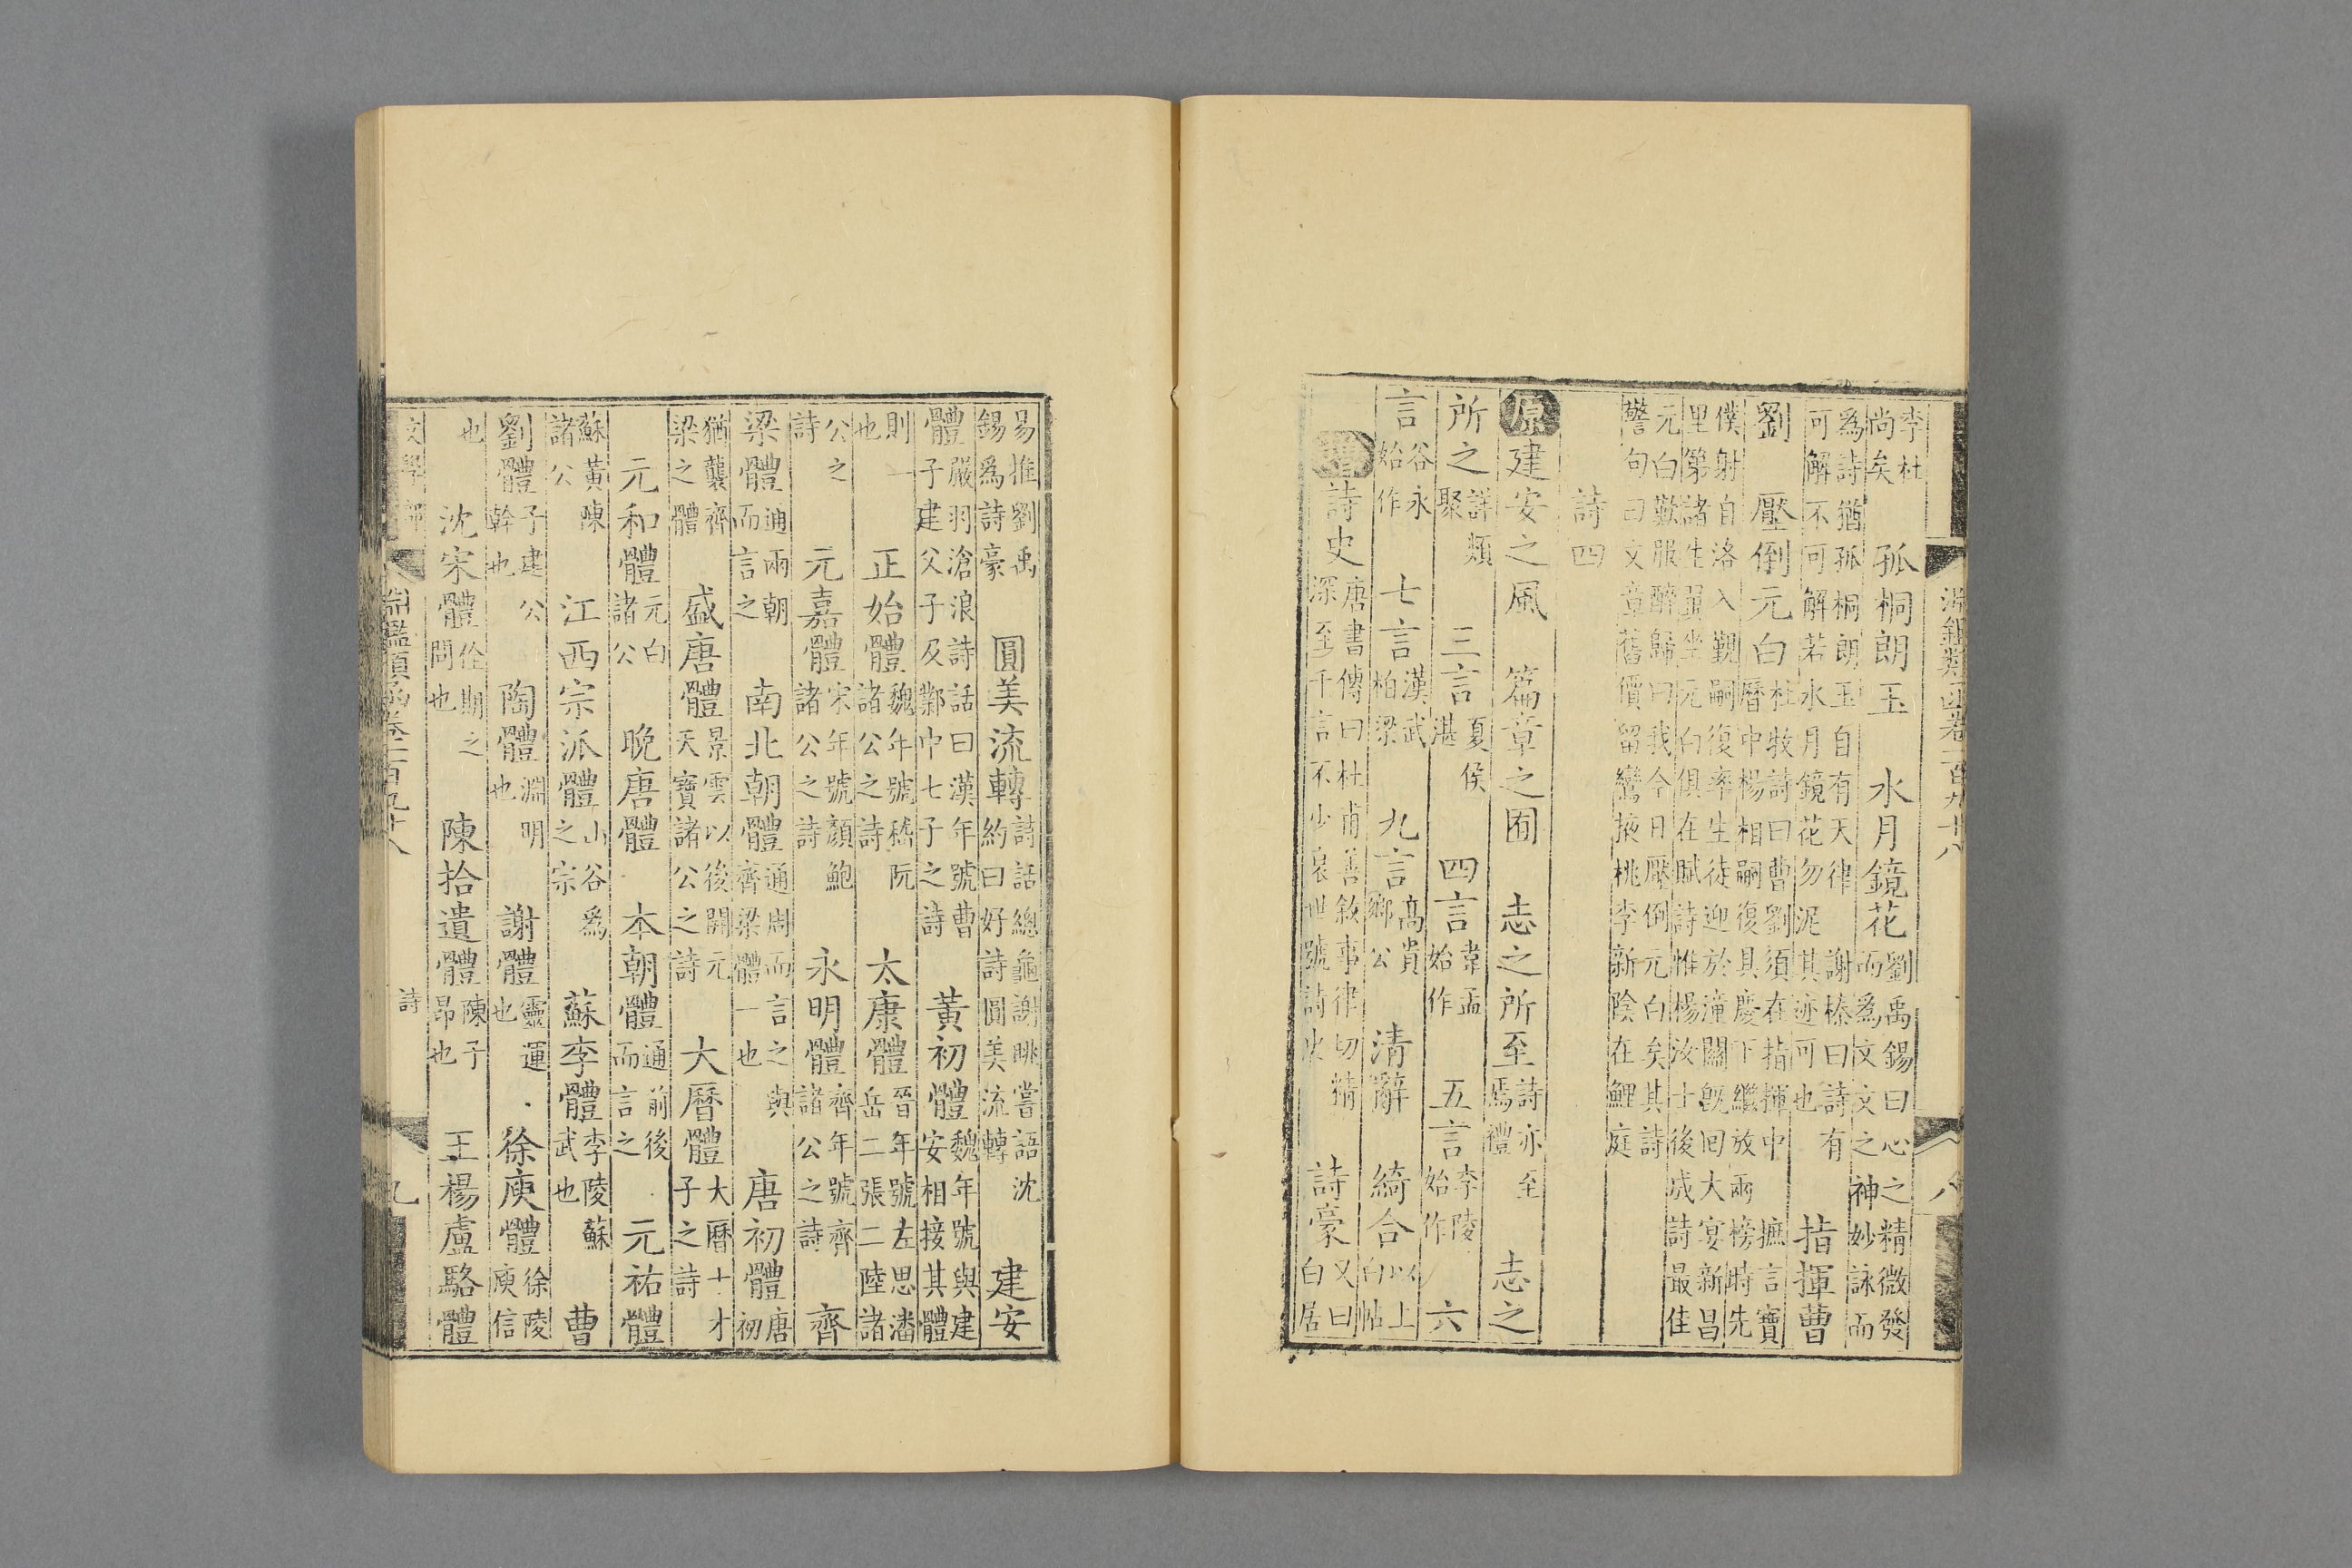 淵鑑類函卷一百九十八　八
李杜尚矣　孤桐朗玉　水月鏡花劉禹錫曰心之精微發而爲文文之神妙詠而
爲詩猶孤桐朗玉自有天律　謝榛曰詩有可解不可解若水月鏡花勿泥其迹可也　指揮曹
劉　壓倒元白杜牧詩曰曹劉須在指揮中　摭言寶曆中楊相嗣復具慶下繼放兩榜時先
僕射自洛入覲嗣復率生徒迎於潼關既回大宴新昌里第諸生翼坐元白俱在賦詩惟楊汝士後成詩最佳
元白歎服醉歸曰我今日壓倒元白矣其詩警句曰文章舊價留鸞掖桃李新陰在鯉庭
詩四
原建安之風　篇章之囿　志之所至詩亦至焉禮　志之
所之詳類聚　三言夏侯湛　四言韋孟始作　五言李陵始作　六
言谷永始作　七言漢武柏梁　九言高貴鄉公　清辭　綺合以上白帖
增詩史唐書傳曰杜甫善敘事律切精深至千言不少衰世號詩史　詩豪又曰白居
易推劉禹錫爲詩豪　圓美流轉詩話總龜謝朓嘗語沈約曰好詩圓美流轉　建安
體嚴羽滄浪詩話曰漢年號曹子建父子及鄴中七子之詩　黃初體魏年號與建安相接其體
則一也　正始體魏年號嵇阮諸公之詩　太康體晉年號左思潘岳二張二陸諸
公之詩　元嘉體宋年號顏鮑諸公之詩　永明體齊年號齊諸公之詩　齊
梁體通兩朝而言之　南北朝體通周而言之與齊梁體一也　唐初體唐初
猶襲齊梁之體　盛唐體景雲以後開元天寶諸公之詩　大曆體大曆十才子之詩
元和體元白諸公　晚唐體　本朝體通前後而言之　元祐體
蘇黃陳諸公　江西宗派體山谷爲之宗　蘇李體李陵蘇武也　曹
劉體子建公幹也　陶體淵明也　謝體靈運也　徐庾體徐陵庾信
也　沈宋體佺期之問也　陳拾遺體陳子昂也　王楊盧駱體
文學部　淵鑑類函卷一百九十八　詩　九